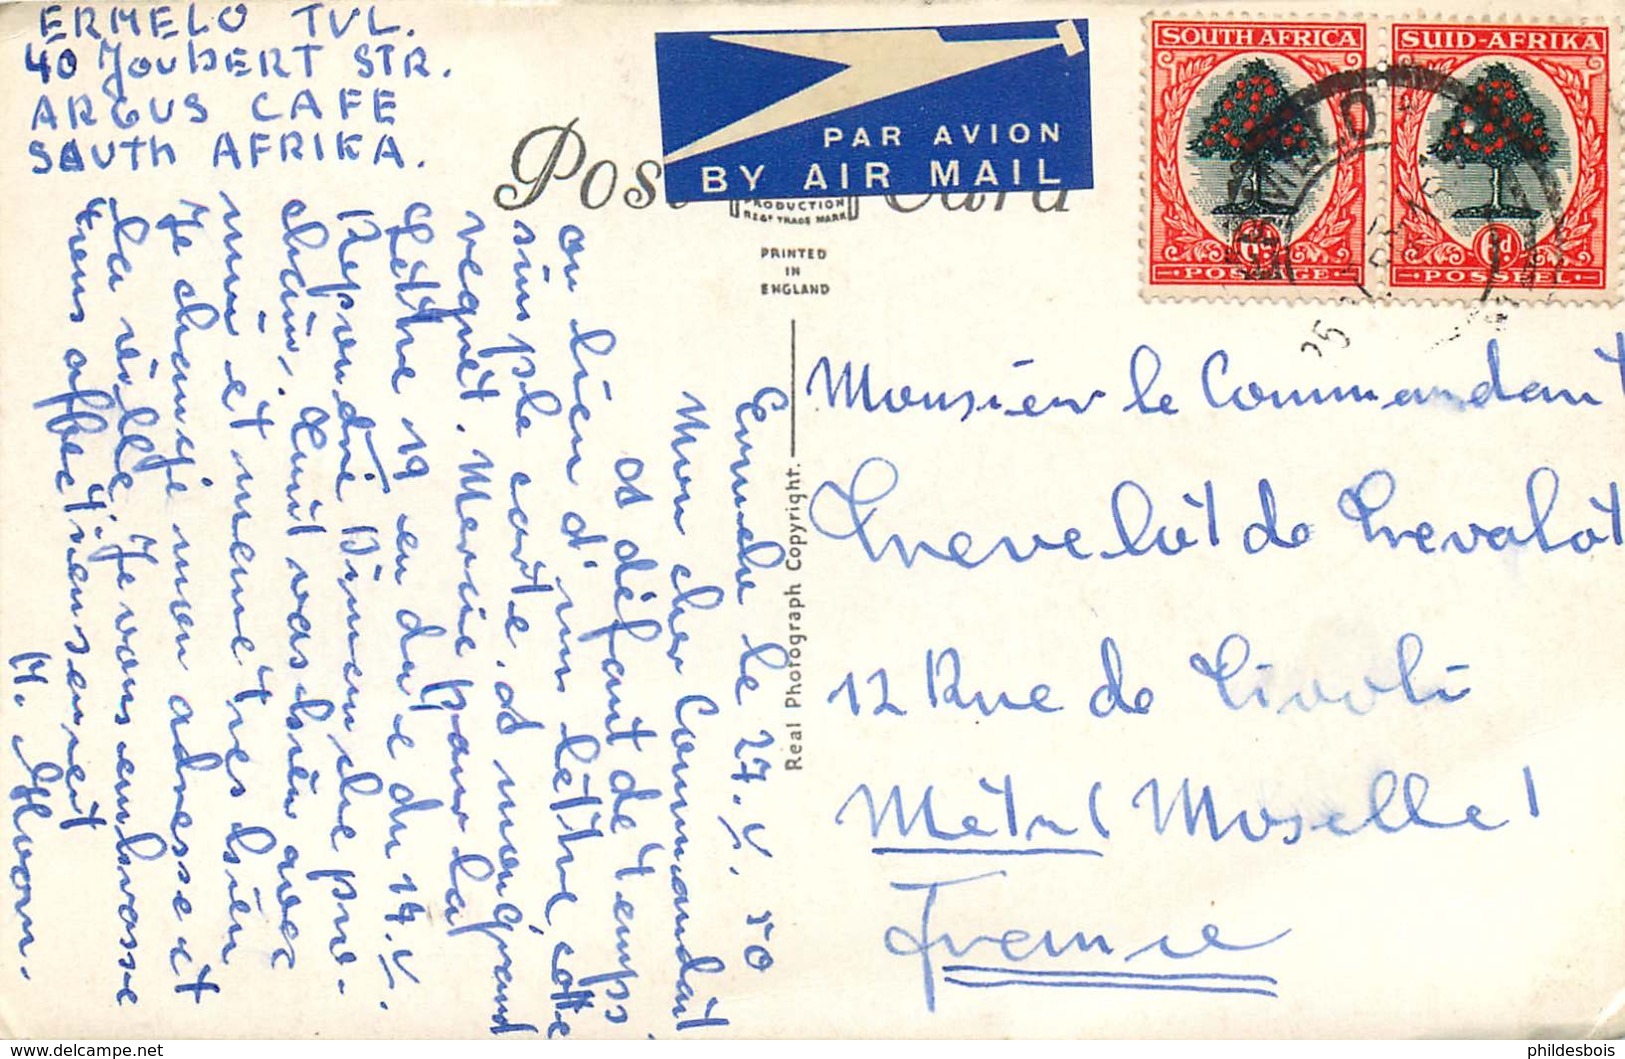 ERMELO TVL.
40 JOUBERT STR.
ARGUS CAFE
SOUTH AFRIKA.
Post Card
PAR AVION
BY AIR MAIL
PRODUCTION
REGD TRADE MARK
PRINTED
IN
ENGLAND
SOUTH AFRICA
POSTAGE
SUID-AFRIKA
6d
POSSEËL
Real Photograph Copyright.
Ermelo le 27. V. 50
Mon cher Commandant
à défaut de temps
au lieu d'une lèttre, cette
simple carte, et mon grand
regrèt. Mercie pour la
lèttre 19 en date du 14. V.
Repondré Dimenche pro-
chain. Luit vas bien avec
mui et mene tres bien
Je change mon adresse et
la ville. Je vous embrasse
tiens affectieusement
Monsieur le Commandant
de
12 Rue de Tivoli
Mètz (Moselle)
France
phildesbois